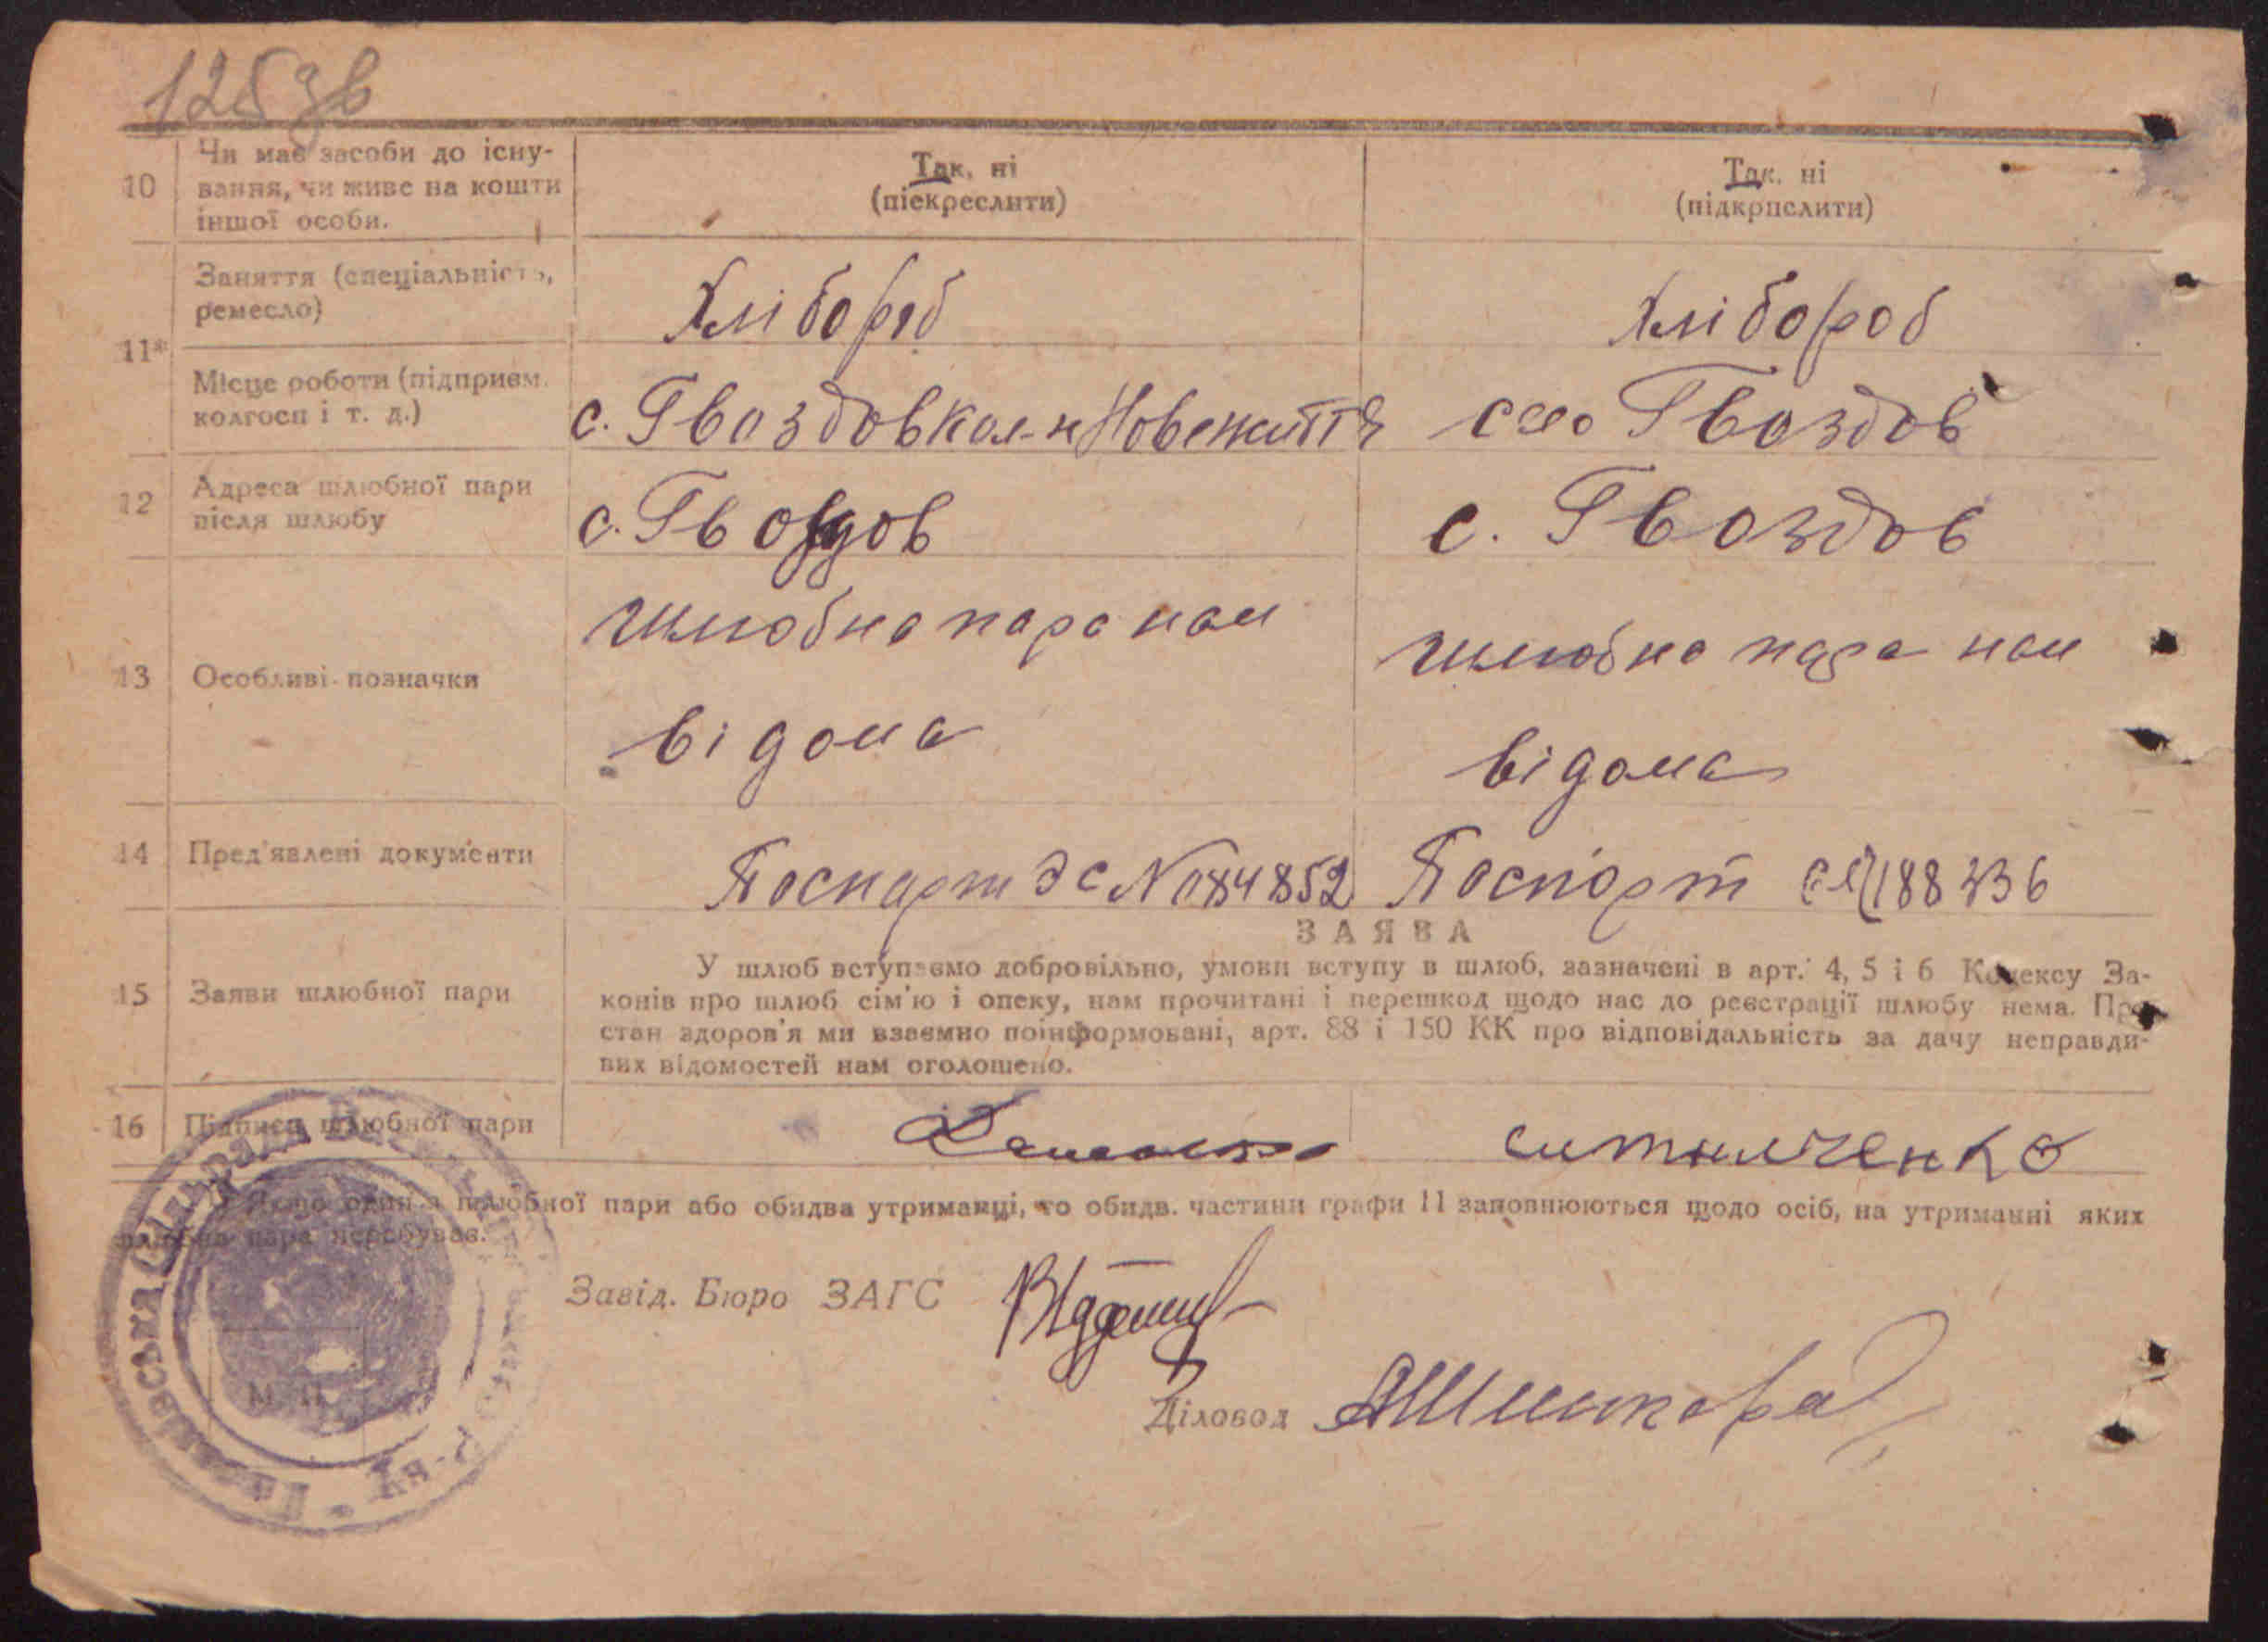 125зв
10
Чи має засоби до існу-
вання, чи живе на кошти
іншої особи.
Так, ні
(піекреслити)
Так, ні
(підкрпслити)
11*
Заняття (спеціальність,
ремесло)
Хлібороб
Хлібороб
Місце роботи (підприєм.
колгосп і т. д.)
с. Гвоздов Кол-н Нове життя
село Гвоздов
12
Адреса шлюбної пари
після шлюбу
с. Гвоздов
с. Гвоздов
13
Особливі позначки
шлюбна пара нам
відома
шлюбна пара нам
відома
14
Пред'явлені документи
Паспорт ЭС № 084852
Паспорт 188336
15
Заяви шлюбної пари
ЗАЯВА
У шлюб вступаємо добровільно, умови вступу в шлюб, зазначені в арт. 4, 5 і 6 Кодексу За-
конів про шлюб сім'ю і опеку, нам прочитані і перешкод щодо нас до реєстрації шлюбу нема. Про
стан здоров'я ми взаємно поінформовані, арт. 88 і 150 КК про відповідальність за дачу неправди-
вих відомостей нам оголошено.
16
Підписи шлюбної пари
ситниченко
Якщо один з шлюбної пари або обидва утриманці, то обидв. частини графи 11 заповнюються щодо осіб, на утриманні яких
шлюбна пара перебуває.
Завід. Бюро ЗАГС
М. П.
Діловод